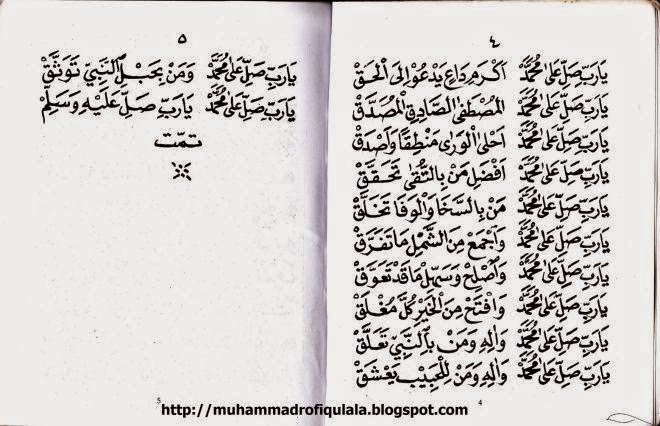 ٤
يَارَبِّ صَلِّ عَلٰى مُحَمَّدْ اَكْرَمِ دَاعٍ يَدْعُوْ اِلَى الْحَقْ
يَارَبِّ صَلِّ عَلٰى مُحَمَّدْ اَلْمُصْطَفٰى الصَّادِقِ الْمُصَدَّقْ
يَارَبِّ صَلِّ عَلٰى مُحَمَّدْ اَحْلَى الْوَرٰى مَنْطِقًا وَاَصْدَقْ
يَارَبِّ صَلِّ عَلٰى مُحَمَّدْ اَفْضَلِ مَنْ بِالتُّقٰى تَحَقَّقْ
يَارَبِّ صَلِّ عَلٰى مُحَمَّدْ مَنْ بِالسَّخَا وَالْوَفَا تَخَلَّقْ
يَارَبِّ صَلِّ عَلٰى مُحَمَّدْ وَاجْمَعْ مِنَ الشَّمْلِ مَا تَفَرَّقْ
يَارَبِّ صَلِّ عَلٰى مُحَمَّدْ وَاَصْلِحْ وَسَهِّلْ مَا قَدْ تَعَوَّقْ
يَارَبِّ صَلِّ عَلٰى مُحَمَّدْ وَافْتَحْ مِنَ الْخَيْرِ كُلَّ مُغْلَقْ
يَارَبِّ صَلِّ عَلٰى مُحَمَّدْ وَاٰلِهِ وَمَنْ بِالنَّبِيِّ تَعَلَّقْ
يَارَبِّ صَلِّ عَلٰى مُحَمَّدْ وَاٰلِهِ وَمَنْ لِلْحَبِيْبِ يَعْشَقْ
4
٥
يَارَبِّ صَلِّ عَلٰى مُحَمَّدْ وَمَنْ بِحَبْلِ النَّبِيِّ تَوَثَّقْ
يَارَبِّ صَلِّ عَلٰى مُحَمَّدْ يَارَبِّ صَلِّ عَلَيْهِ وَسَلِّمْ
تمت
5
http://muhammadrofiqulala.blogspot.com